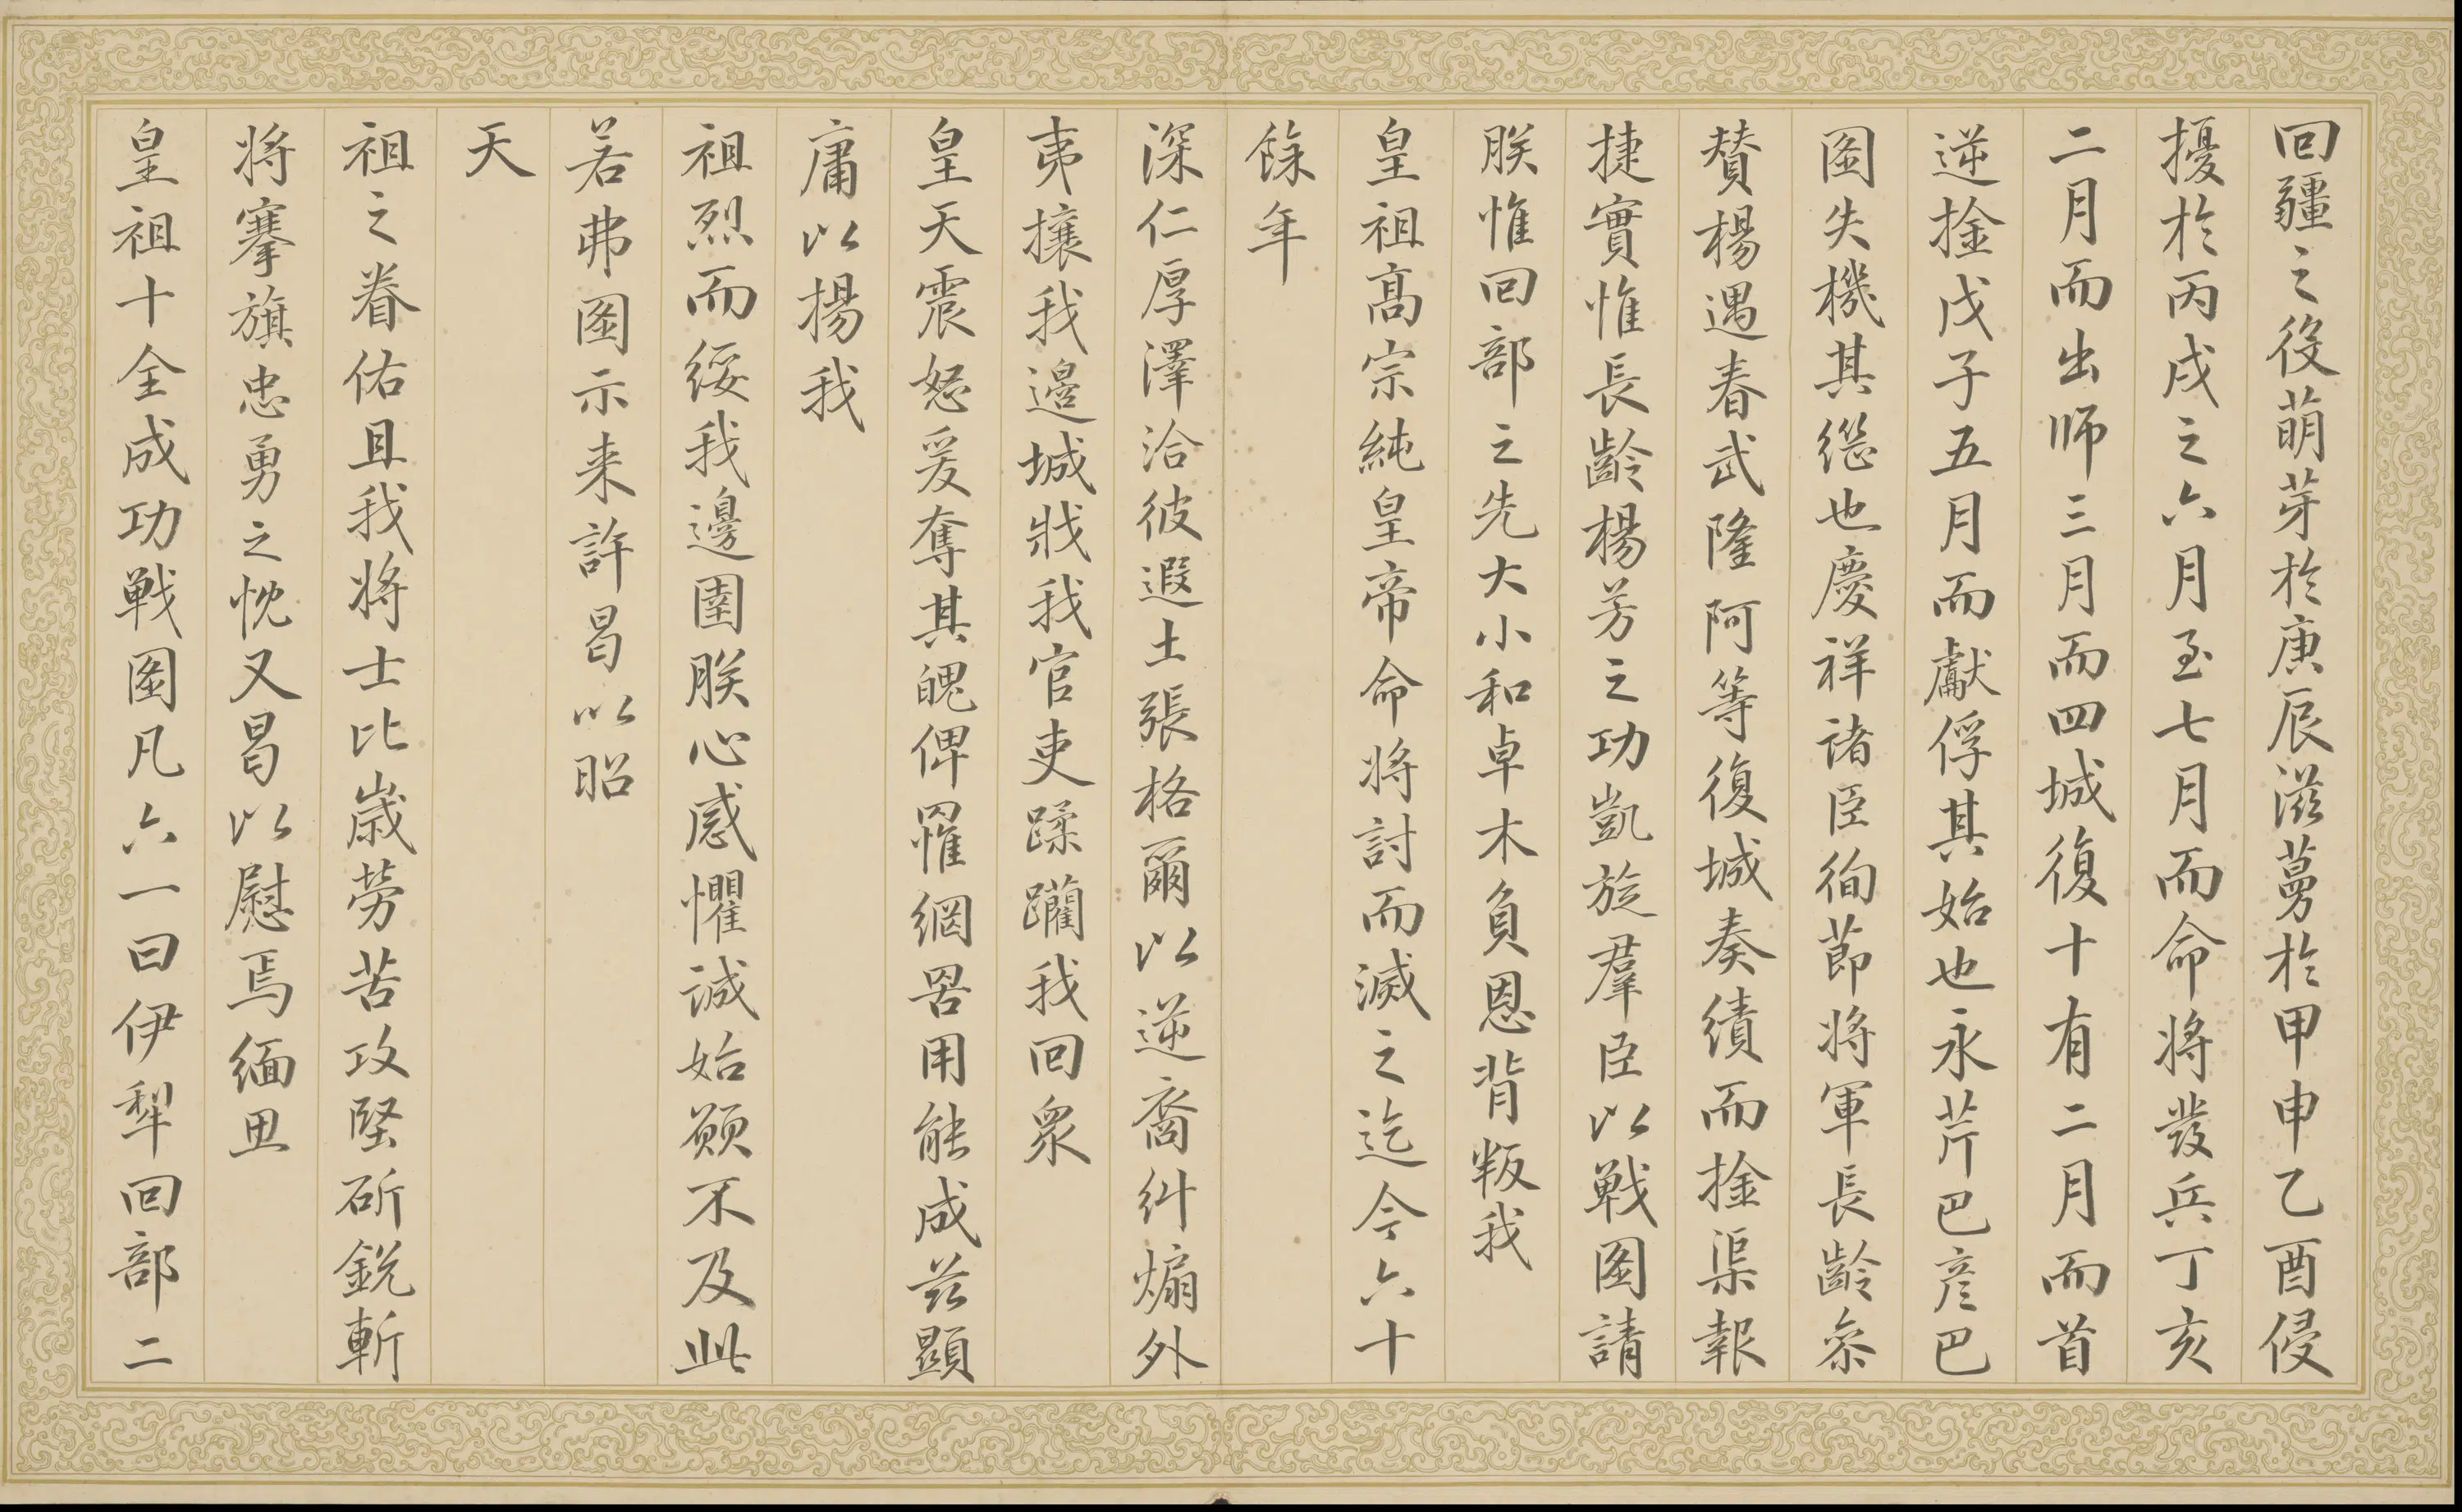 回疆之役萌芽於庚辰滋蔓於甲申乙酉侵
擾於丙戌之六月至七月而命將發兵丁亥
二月而出師三月而四城復十有二月而首
逆捦戊子五月而獻俘其始也永芹巴彥巴
圖失機其繼也慶祥諸臣徇節將軍長齡叅
贊楊遇春武隆阿等復城奏績而捦渠報
捷實惟長齡楊芳之功凱旋羣臣以戰圖請
朕惟回部之先大小和卓木負恩背叛我
皇祖高宗純皇帝命將討而滅之迄今六十
餘年
深仁厚澤洽彼遐土張格爾以逆裔糾煽外
夷攘我邊城戕我官吏蹂躪我回衆
皇天震怒爰奪其魄俾罹網罟用能成茲顯
庸以揚我
祖烈而綏我邊圉朕心感懼誠始願不及此
若弗圖示来許曷以昭
天
祖之眷佑且我將士比歲勞苦攻堅斫銳斬
將搴旗忠勇之忱又曷以慰焉緬思
皇祖十全成功戰圖凡六一曰伊犁回部二